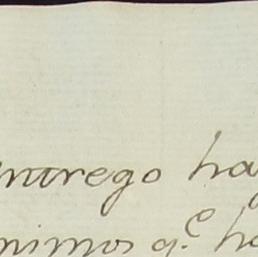 ntrego ha
nimos q.e ha